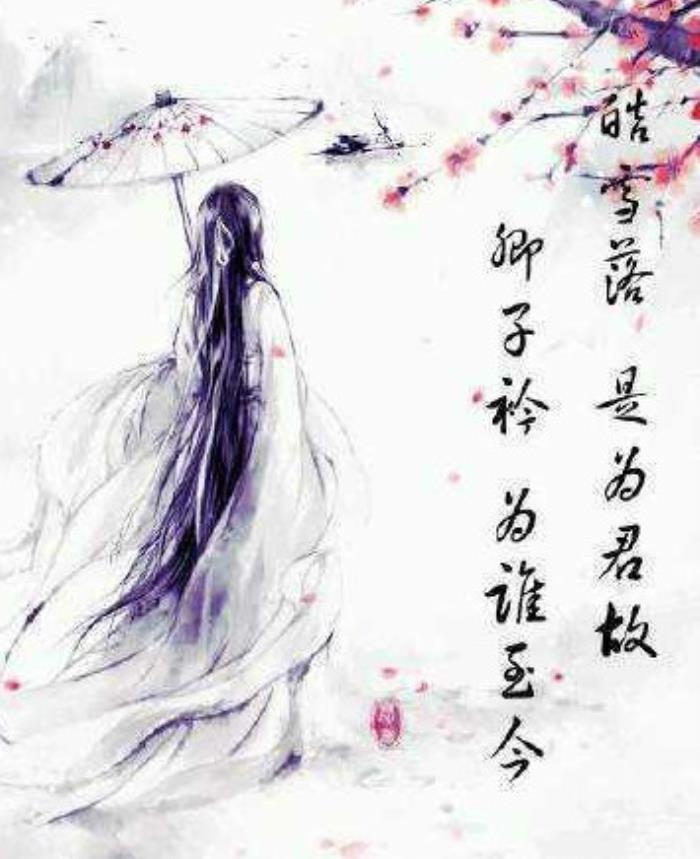 皓雪落 是为君故
卿子衿 为谁至今